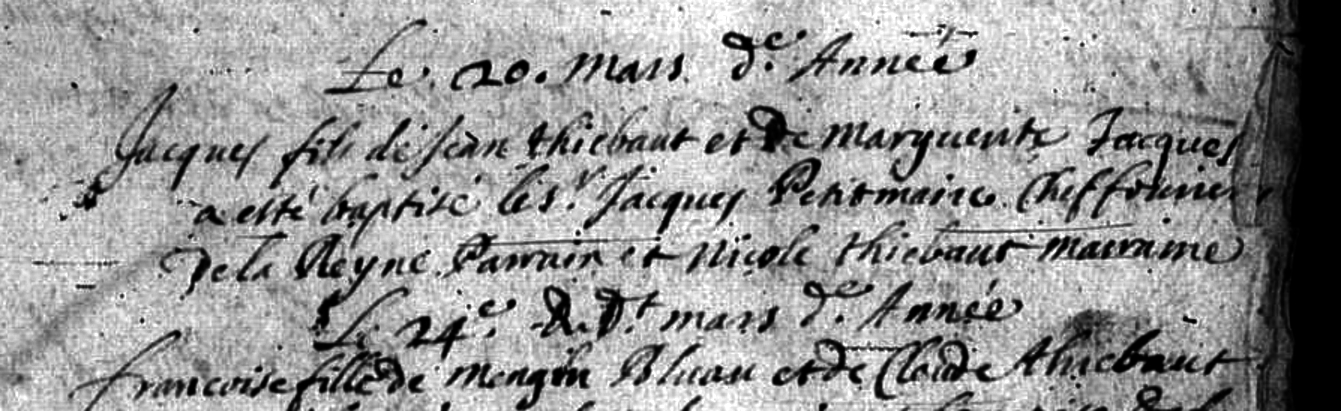 Le 20. Mars de. Année
Jacques fils de Jean thiebaut et de Marguerite Jacques
a esté baptisé le sr. Jacques Petitmaire Chef fourier
De la Reyne Parrain et Nicole thiebaut marraine
Le 24e. du dt. mars de. Année
francoise fille de mengin et de Claude thiebaut